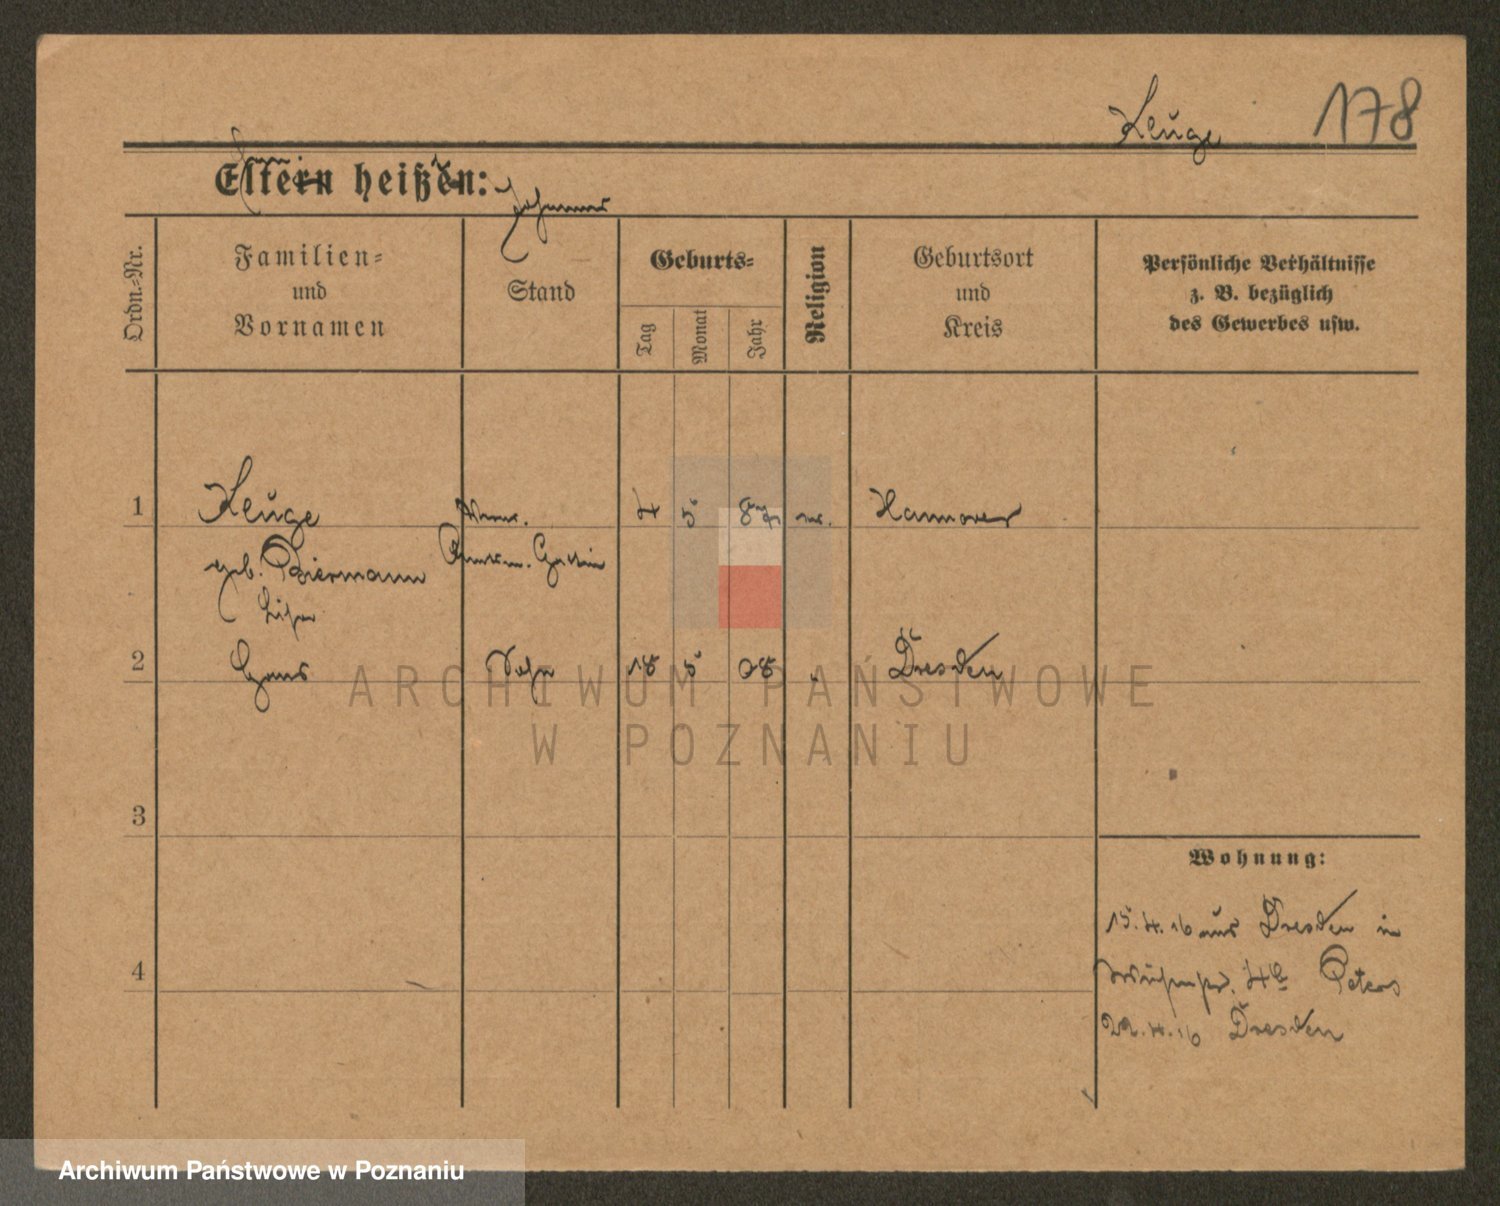 Keuge 178
Eltern heißen:
Johannes
Ordn.-Nr.
Familien-
und
Vornamen
Stand
Geburts-
Tag
Monat
Jahr
Religion
Geburtsort
und
Kreis
Persönliche Verhältnisse
z. B. bezüglich
des Gewerbes usw.
1 Keuge 4 5 Hannover
geb. Biermann
2 Hans Sohn 18 5 08 " Dresden
3
4
Wohnung:
15.4.16 aus Dresden in
4a Peters
22.4.16 Dresden
ARCHIWUM PAŃSTWOWE
W POZNANIU
Archiwum Państwowe w Poznaniu